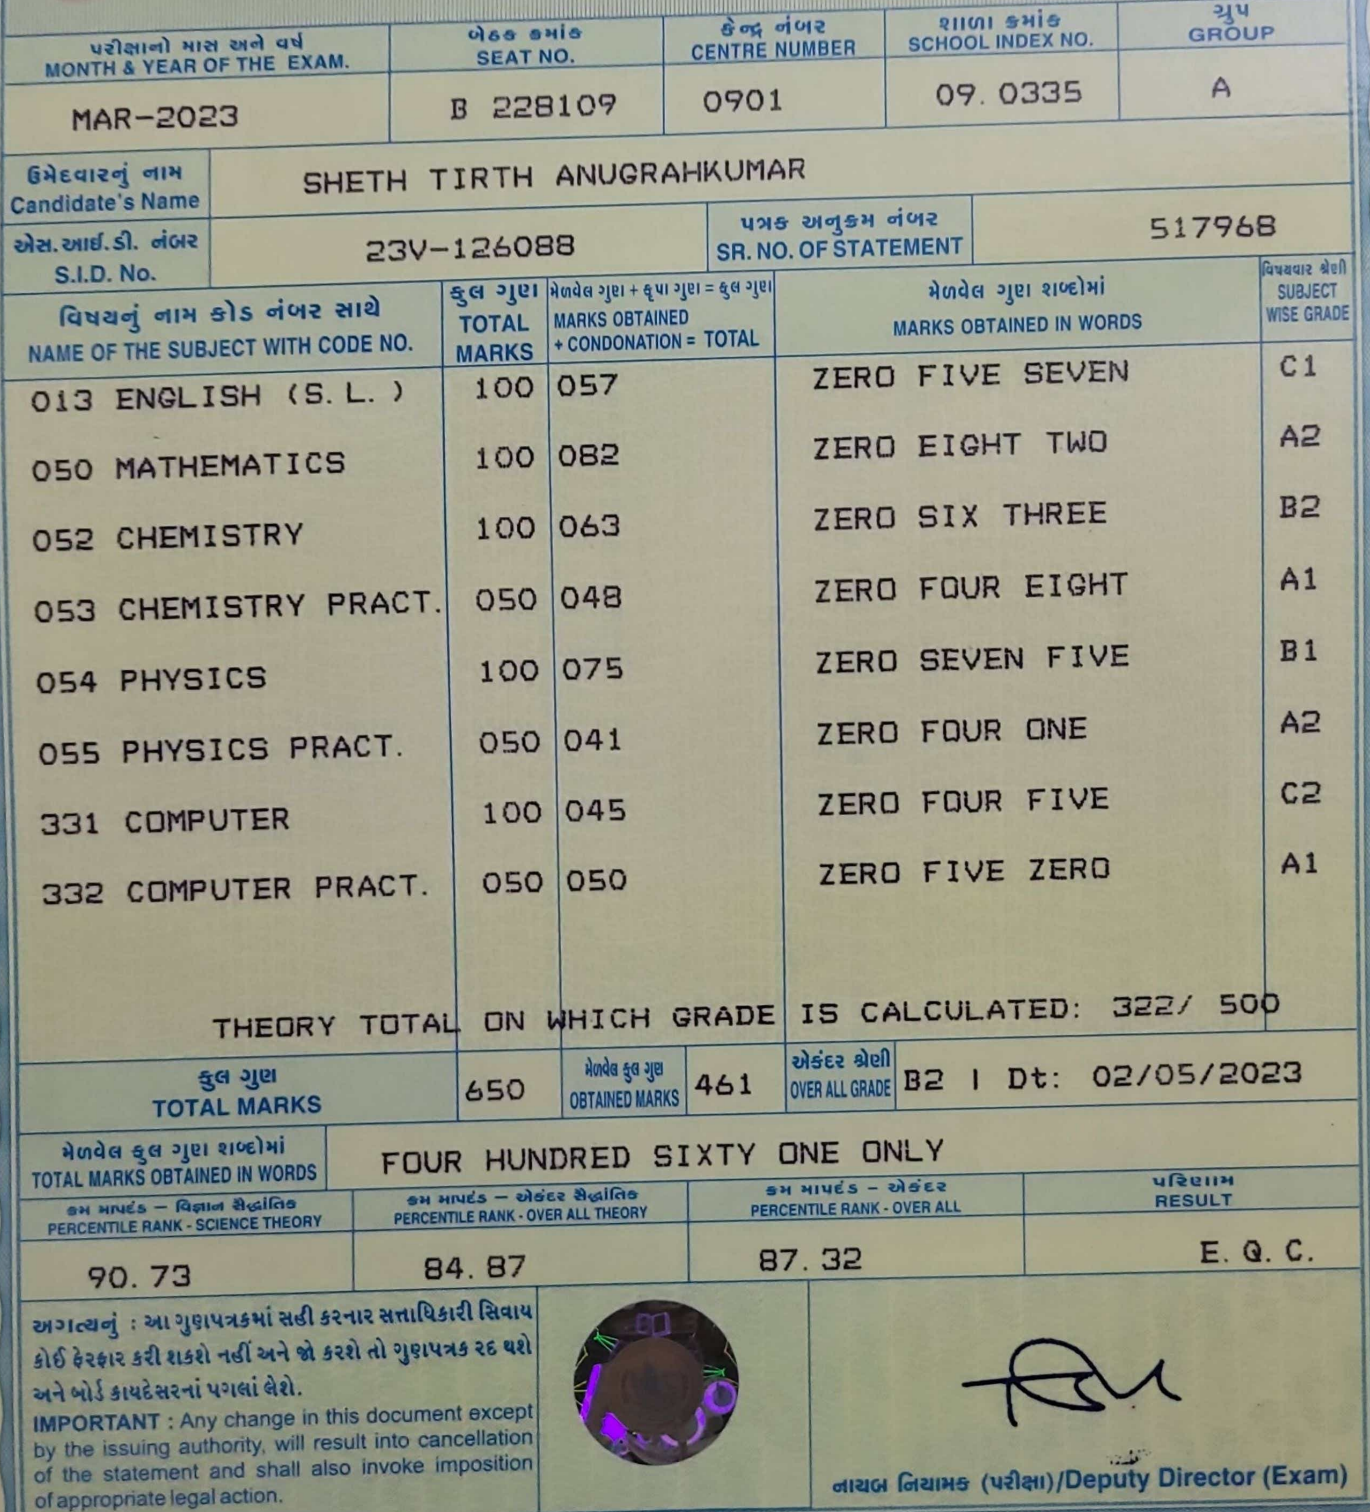 પરીક્ષાનો માસ અને વર્ષ
MONTH & YEAR OF THE EXAM.
બેઠક ક્રમાંક
SEAT NO.
કેન્દ્ર નંબર
CENTRE NUMBER
શાળા ક્રમાંક
SCHOOL INDEX NO.
ગ્રુપ
GROUP
MAR-2023
B 228109
0901
09. 0335
A
ઉમેદવારનું નામ
Candidate's Name
SHETH TIRTH ANUGRAHKUMAR
એસ.આઈ.ડી. નંબર
S.I.D. No.
23V-126088
પત્રક અનુક્રમ નંબર
SR. NO. OF STATEMENT
517968
વિષયનું નામ કોડ નંબર સાથે
NAME OF THE SUBJECT WITH CODE NO.
કુલ ગુણ
TOTAL
MARKS
મેળવેલ ગુણ + કૃપા ગુણ = કુલ ગુણ
MARKS OBTAINED
+ CONDONATION = TOTAL
મેળવેલ ગુણ શબ્દોમાં
MARKS OBTAINED IN WORDS
વિષયવાર શ્રેણી
SUBJECT
WISE GRADE
013 ENGLISH (S. L. ) 100 057 ZERO FIVE SEVEN C1
050 MATHEMATICS 100 082 ZERO EIGHT TWO A2
052 CHEMISTRY 100 063 ZERO SIX THREE B2
053 CHEMISTRY PRACT. 050 048 ZERO FOUR EIGHT A1
054 PHYSICS 100 075 ZERO SEVEN FIVE B1
055 PHYSICS PRACT. 050 041 ZERO FOUR ONE A2
331 COMPUTER 100 045 ZERO FOUR FIVE C2
332 COMPUTER PRACT. 050 050 ZERO FIVE ZERO A1
THEORY TOTAL ON WHICH GRADE IS CALCULATED: 322/ 500
કુલ ગુણ
TOTAL MARKS
650
મેળવેલ કુલ ગુણ
OBTAINED MARKS
461
એકંદર શ્રેણી
OVER ALL GRADE
B2 | Dt: 02/05/2023
મેળવેલ કુલ ગુણ શબ્દોમાં
TOTAL MARKS OBTAINED IN WORDS
FOUR HUNDRED SIXTY ONE ONLY
ક્રમ માપદંડ – વિજ્ઞાન સૈદ્ધાંતિક
PERCENTILE RANK - SCIENCE THEORY
ક્રમ માપદંડ – એકંદર સૈદ્ધાંતિક
PERCENTILE RANK - OVER ALL THEORY
ક્રમ માપદંડ – એકંદર
PERCENTILE RANK - OVER ALL
પરિણામ
RESULT
90. 73
84. 87
87. 32
E. Q. C.
અગત્યનું : આ ગુણપત્રકમાં સહી કરનાર સત્તાધિકારી સિવાય
કોઈ ફેરફાર કરી શકશે નહીં અને જો કરશે તો ગુણપત્રક રદ થશે
અને બોર્ડ કાયદેસરનાં પગલાં લેશે.
IMPORTANT : Any change in this document except
by the issuing authority, will result into cancellation
of the statement and shall also invoke imposition
of appropriate legal action.
નાયબ નિયામક (પરીક્ષા)/Deputy Director (Exam)